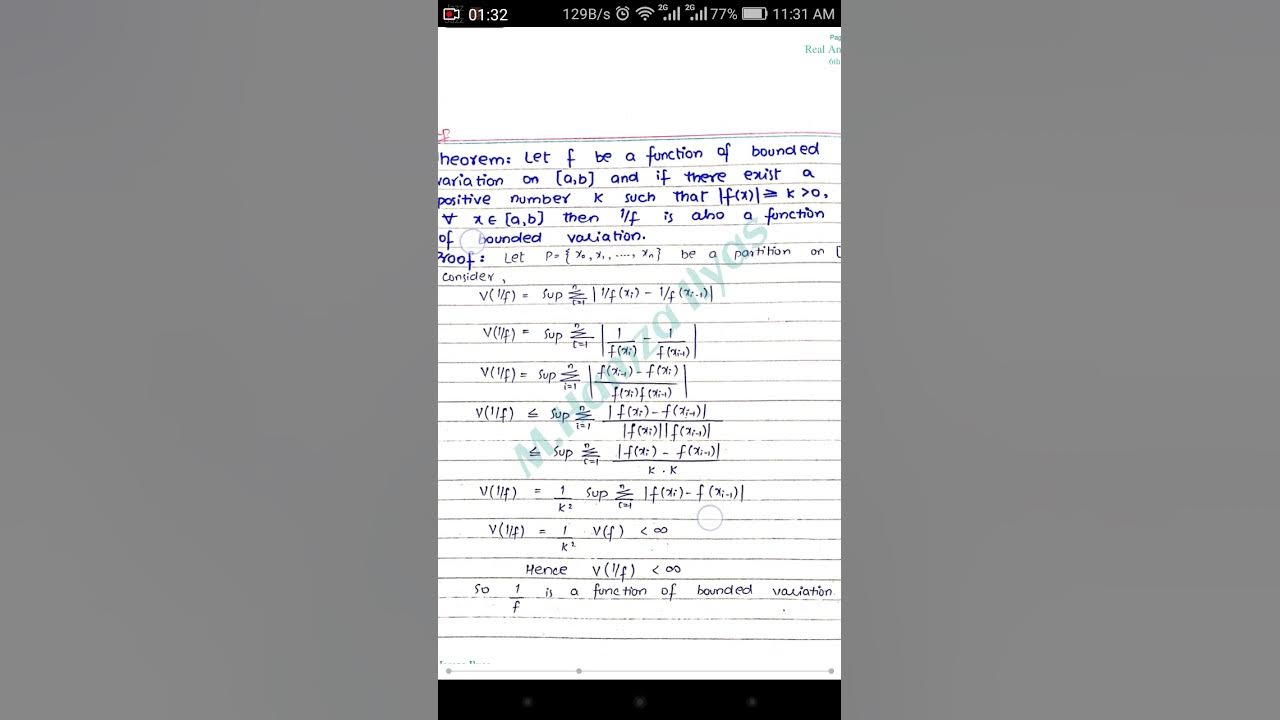 01:32 129B/s 2G 2G 77% 11:31 AM
Pag
Real An
6th
heorem: Let f be a function of bounded
variation on [a,b] and if there exist a
positive number K such that |f(x)| ≥ K >0,
∀ x ∈ [a,b] then 1/f is also a function
of bounded variation.
Proof: Let P={ x₀, x₁, ...., xₙ} be a partition on [
consider,
V(1/f) = Sup Σⁿᵢ₌₁ | 1/f(xᵢ) - 1/f(xᵢ₋₁)|
V(1/f) = Sup Σⁿᵢ₌₁ | 1/f(xᵢ) - 1/f(xᵢ₋₁) |
V(1/f) = Sup Σⁿᵢ₌₁ | f(xᵢ₋₁) - f(xᵢ) / f(xᵢ)f(xᵢ₋₁) |
V(1/f) ≤ Sup Σⁿᵢ₌₁ |f(xᵢ) - f(xᵢ₋₁)| / |f(xᵢ)||f(xᵢ₋₁)|
≤ Sup Σⁿᵢ₌₁ |f(xᵢ) - f(xᵢ₋₁)| / K . K
V(1/f) = 1/K² Sup Σⁿᵢ₌₁ |f(xᵢ) - f(xᵢ₋₁)|
V(1/f) = 1/K² V(f) < ∞
Hence V(1/f) < ∞
So 1/f is a function of bounded variation
M.Hamza Ilyas